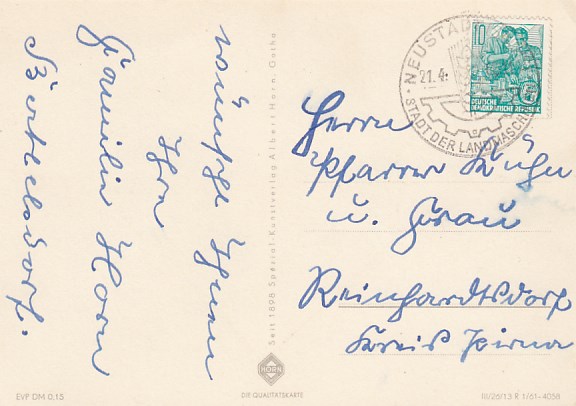 wünscht Ihnen
Ihre
Familie Horn
Berthelsdorf.
Seit 1898 Spezial-Kunstverlag Albert Horn, Gotha
NEUSTADT
21.4.
STADT DER LANDMASCH
10
DEUTSCHE
DEMOKRATISCHE REPUBLIK
Herrn
Pfarrer Kühn
u. Frau
Reinhardtsdorf
Kreis Pirna
HORN
EVP DM 0.15
DIE QUALITÄTSKARTE
III/26/13 R 1/61-4058